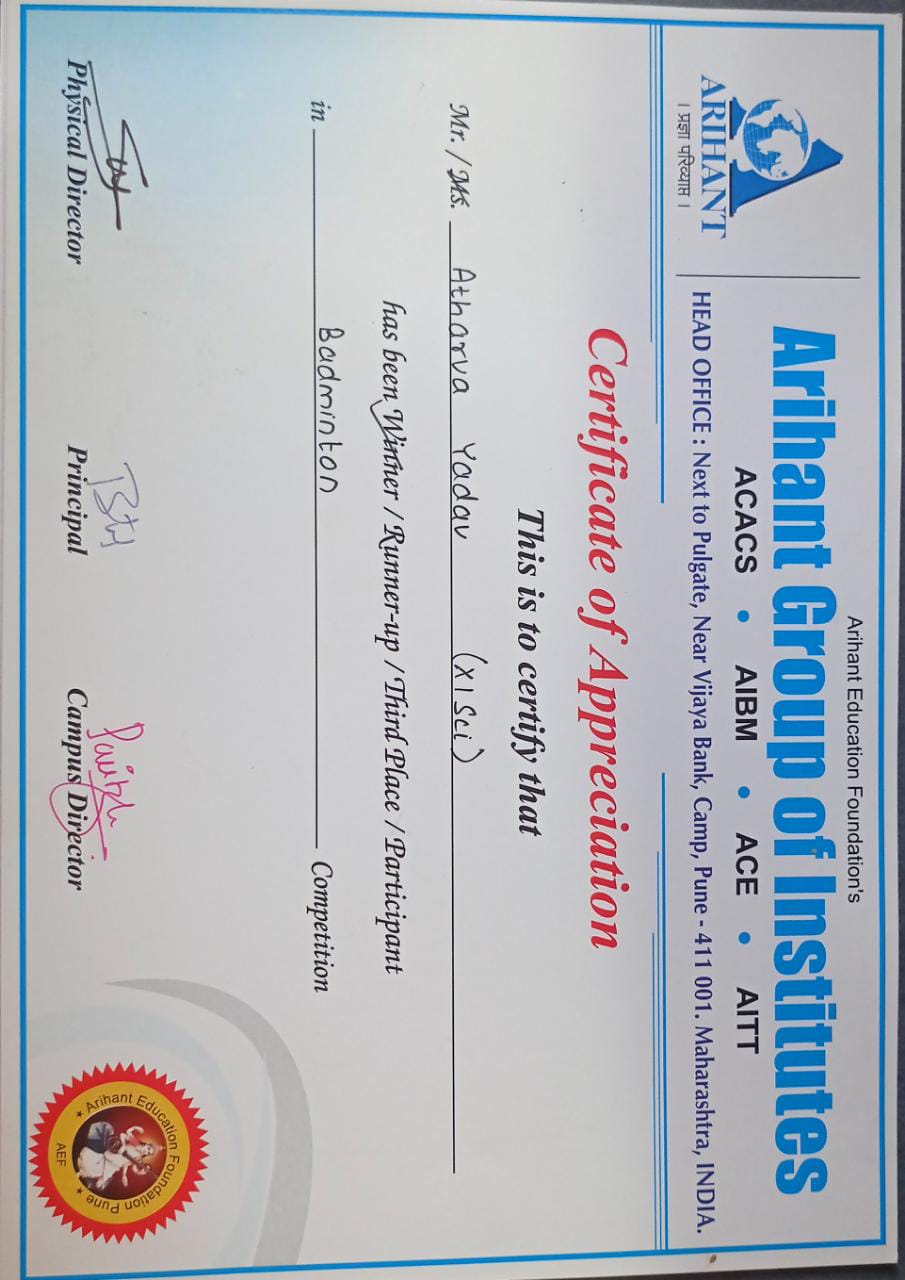 Arihant Education Foundation's
Arihant Group of Institutes
ACACS • AIBM • ACE • AITT
HEAD OFFICE : Next to Pulgate, Near Vijaya Bank, Camp, Pune - 411 001. Maharashtra, INDIA.
ARIHANT
। प्रज्ञा परिव्याप्त ।
Certificate of Appreciation
This is to certify that
Mr. / Ms. Atharva Yadav (XI Sci)
has been Winner / Runner-up / Third Place / Participant
in Badminton Competition
Physical Director
Principal
Campus Director
Arihant Education Foundation Pune
AEF